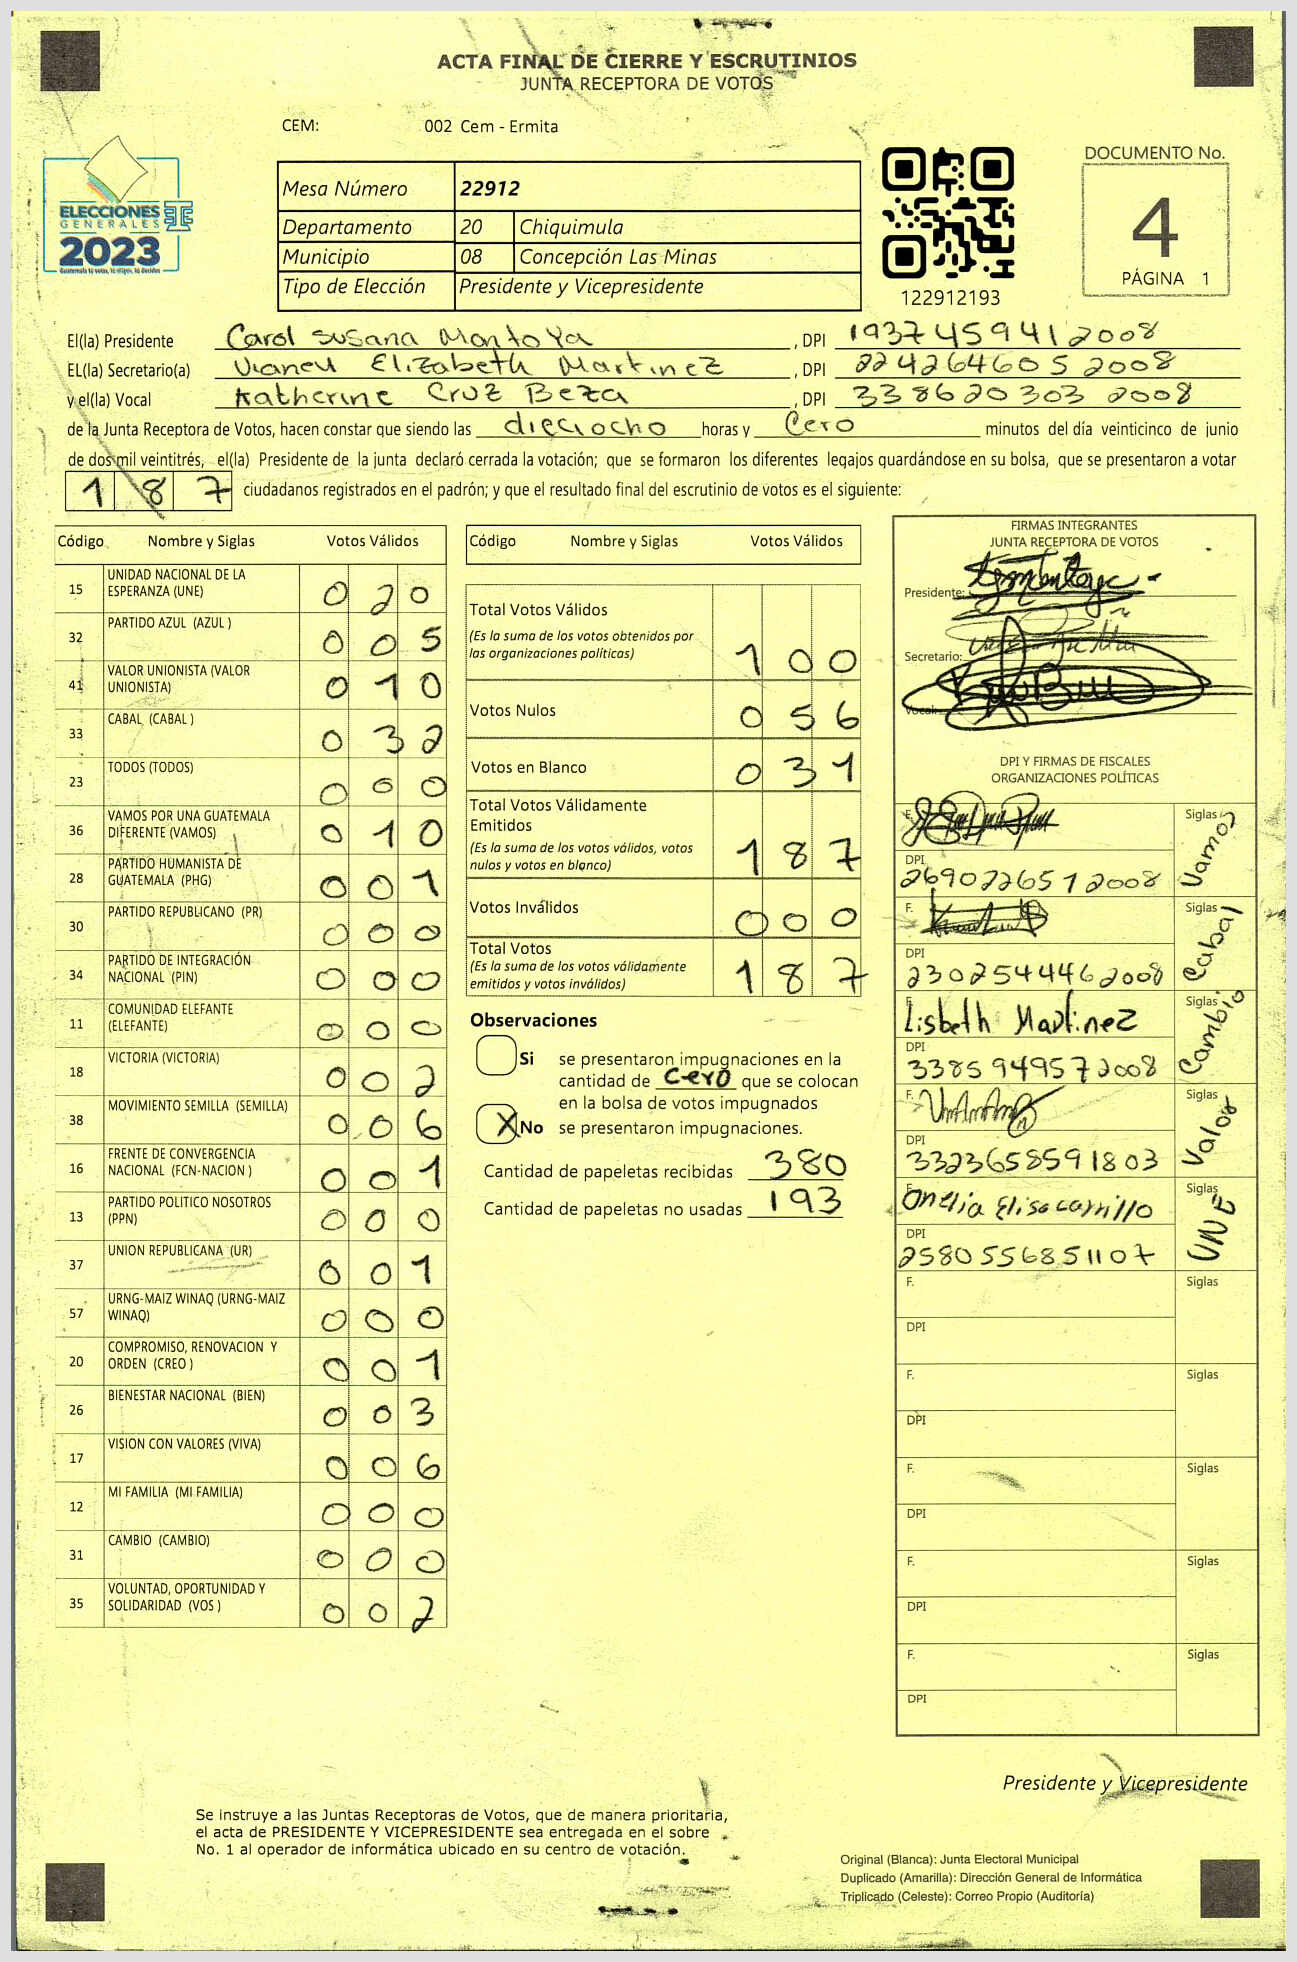 ACTA FINAL DE CIERRE Y ESCRUTINIOS
JUNTA RECEPTORA DE VOTOS
CEM: 002 Cem - Ermita
ELECCIONES
GENERALES
2023
Guatemala tú votas, tú eliges, tú decides
Mesa Número 22912
Departamento 20 Chiquimula
Municipio 08 Concepción Las Minas
Tipo de Elección Presidente y Vicepresidente
122912193
DOCUMENTO No.
4
PÁGINA 1
El(la) Presidente Carol Susana Montoya, DPI 1937459412008
EL(la) Secretario(a) Vianey Elizabeth Martinez, DPI 2242646052008
y el(la) Vocal Katherine Cruz Beza, DPI 3386203032008
de la Junta Receptora de Votos, hacen constar que siendo las dieciocho horas y Cero minutos del día veinticinco de junio
de dos mil veintitrés, el(la) Presidente de la junta declaró cerrada la votación; que se formaron los diferentes legajos guardándose en su bolsa, que se presentaron a votar
187 ciudadanos registrados en el padrón; y que el resultado final del escrutinio de votos es el siguiente:
Código Nombre y Siglas Votos Válidos
15 UNIDAD NACIONAL DE LA ESPERANZA (UNE) 020
32 PARTIDO AZUL (AZUL ) 005
41 VALOR UNIONISTA (VALOR UNIONISTA) 010
33 CABAL (CABAL ) 032
23 TODOS (TODOS) 000
36 VAMOS POR UNA GUATEMALA DIFERENTE (VAMOS) 010
28 PARTIDO HUMANISTA DE GUATEMALA (PHG) 001
30 PARTIDO REPUBLICANO (PR) 000
34 PARTIDO DE INTEGRACIÓN NACIONAL (PIN) 000
11 COMUNIDAD ELEFANTE (ELEFANTE) 000
18 VICTORIA (VICTORIA) 002
38 MOVIMIENTO SEMILLA (SEMILLA) 006
16 FRENTE DE CONVERGENCIA NACIONAL (FCN-NACION ) 001
13 PARTIDO POLITICO NOSOTROS (PPN) 000
37 UNION REPUBLICANA (UR) 001
57 URNG-MAIZ WINAQ (URNG-MAIZ WINAQ) 000
20 COMPROMISO, RENOVACION Y ORDEN (CREO ) 001
26 BIENESTAR NACIONAL (BIEN) 003
17 VISION CON VALORES (VIVA) 006
12 MI FAMILIA (MI FAMILIA) 000
31 CAMBIO (CAMBIO) 000
35 VOLUNTAD, OPORTUNIDAD Y SOLIDARIDAD (VOS ) 002
Código Nombre y Siglas Votos Válidos
Total Votos Válidos
(Es la suma de los votos obtenidos por
las organizaciones políticas) 100
Votos Nulos 056
Votos en Blanco 031
Total Votos Válidamente
Emitidos
(Es la suma de los votos válidos, votos
nulos y votos en blanco) 187
Votos Inválidos 000
Total Votos
(Es la suma de los votos válidamente
emitidos y votos inválidos) 187
Observaciones
Si se presentaron impugnaciones en la
cantidad de cero que se colocan
en la bolsa de votos impugnados
X No se presentaron impugnaciones.
Cantidad de papeletas recibidas 380
Cantidad de papeletas no usadas 193
FIRMAS INTEGRANTES
JUNTA RECEPTORA DE VOTOS
Presidente:
Secretario:
Vocal:
DPI Y FIRMAS DE FISCALES
ORGANIZACIONES POLÍTICAS
F. Siglas Vamos
DPI 2690226512008
F. Siglas Cabal
DPI 2302544462008
F. Lisbeth Martinez Siglas Cambio
DPI 3385949572008
F. Siglas Valor
DPI 3323658591803
F. Onelia Elisa carrillo Siglas UNE
DPI 2580556851107
F. Siglas
DPI
F. Siglas
DPI
F. Siglas
DPI
F. Siglas
DPI
F. Siglas
DPI
Presidente y Vicepresidente
Se instruye a las Juntas Receptoras de Votos, que de manera prioritaria,
el acta de PRESIDENTE Y VICEPRESIDENTE sea entregada en el sobre
No. 1 al operador de informática ubicado en su centro de votación.
Original (Blanca): Junta Electoral Municipal
Duplicado (Amarilla): Dirección General de Informática
Triplicado (Celeste): Correo Propio (Auditoría)